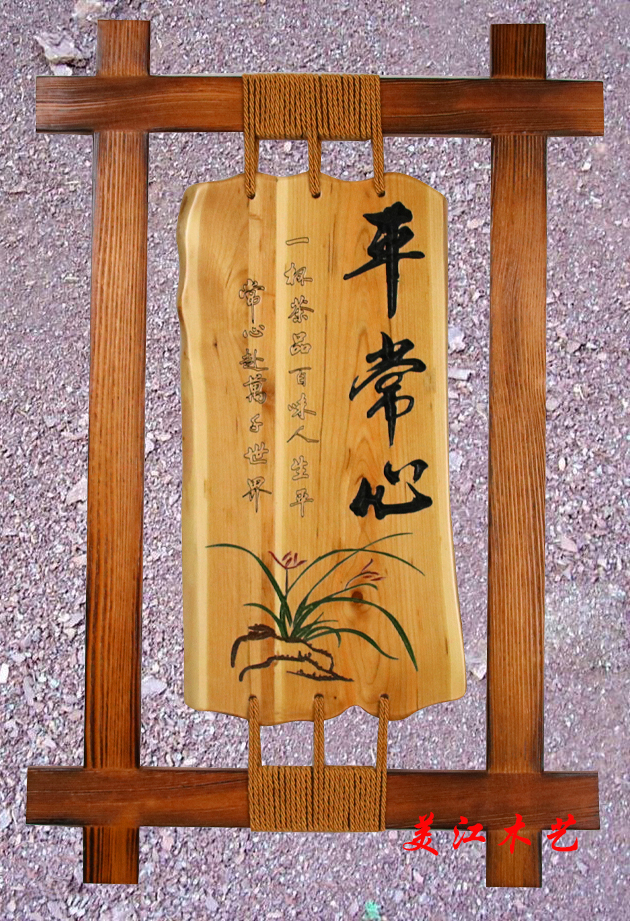 平常心
一杯茶品百味人生平
常心处萬千世界
美江木艺